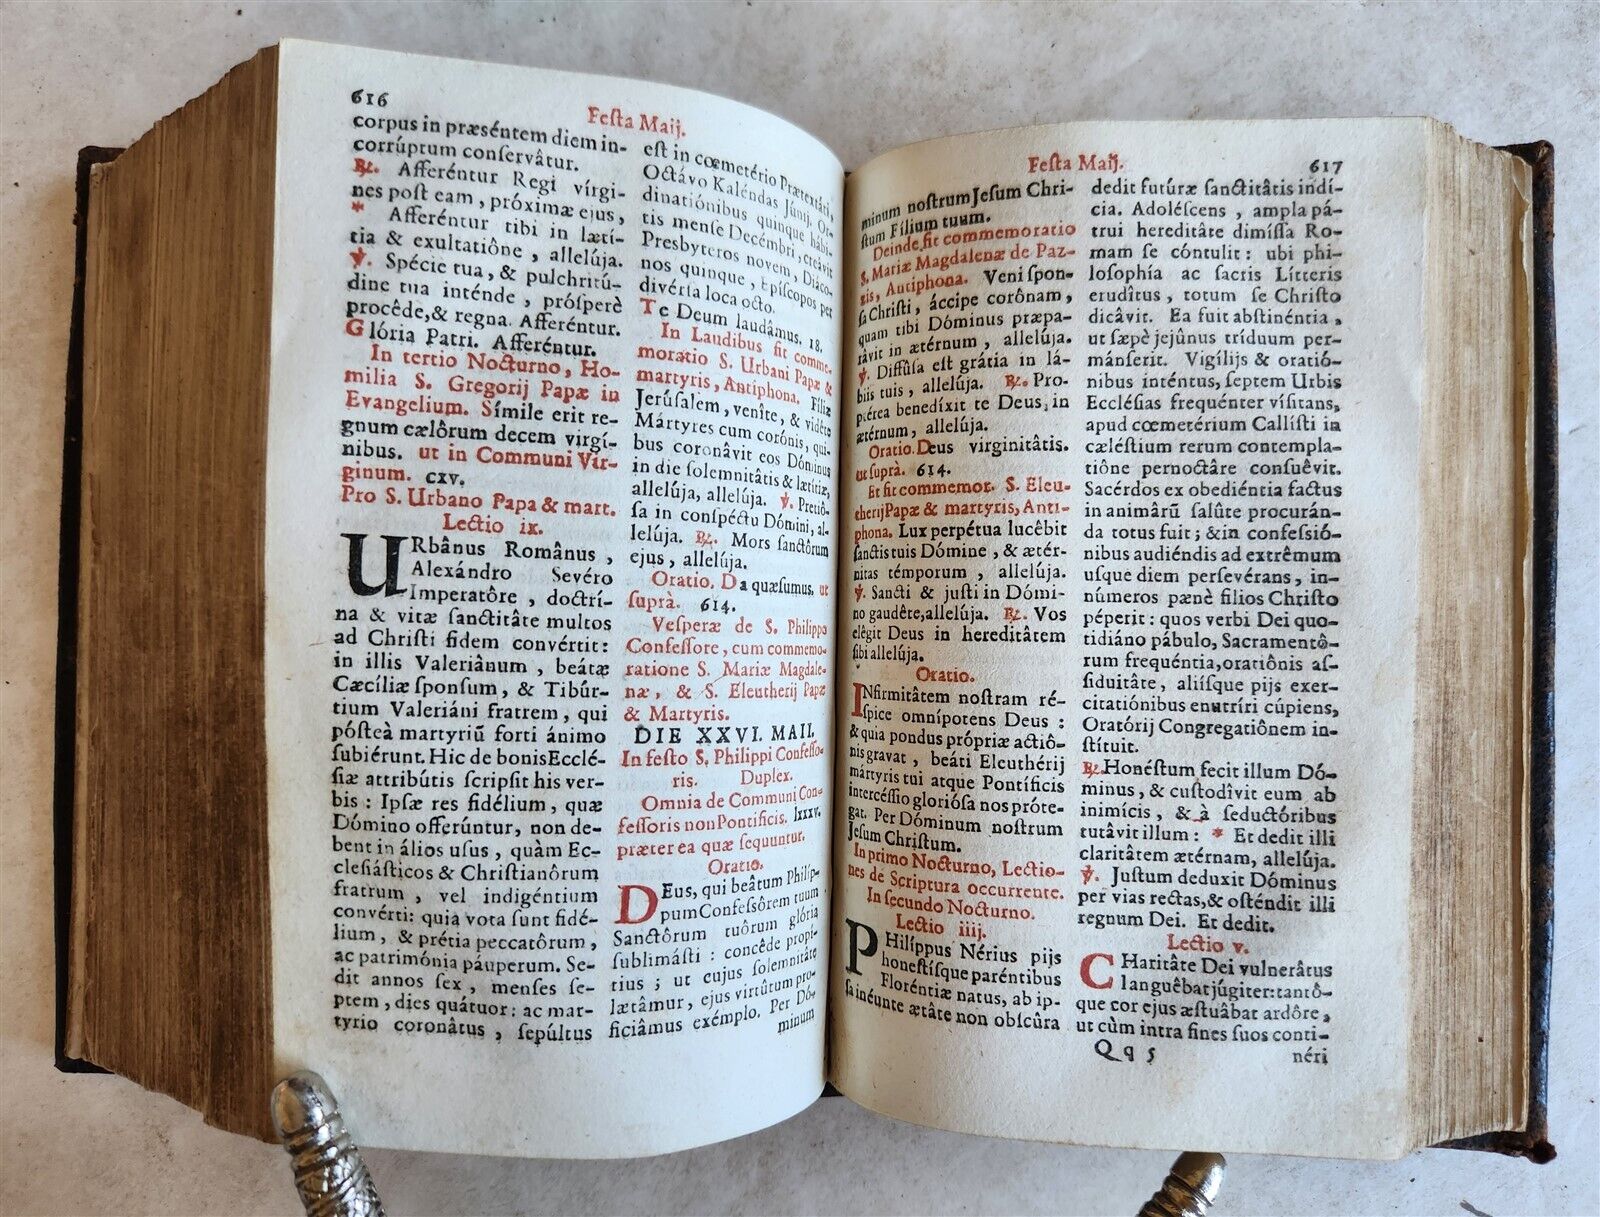 616
Feſta Maij.
corpus in præséntem diem in-
corrúptum conſervâtur.
℟. Afferéntur Regi vírgi-
nes poſt eam, próximæ ejus,
* Afferéntur tibi in lætí-
tia & exultatiône, allelúja.
℣. Spécie tua, & pulchritú-
dine tua inténde, próſperè
procêde, & regna. Afferéntur.
Glória Patri. Afferéntur.
In tertio Nocturno, Ho-
milia S. Gregorij Papæ in
Evangelium. Símile erit re-
gnum cælôrum decem virgí-
nibus. ut in Communi Vir-
ginum. cxv.
Pro S. Urbano Papa & mart.
Lectio ix.
URbânus Românus,
Alexándro Sevéro
Imperatôre, doctrí-
na & vitæ ſanctitâte multos
ad Chriſti fidem convértit:
in illis Valeriânum, beátæ
Cæcíliæ ſponſum, & Tibúr-
tium Valeriáni fratrem, qui
póſteà martyriũ forti ánimo
ſubiérunt. Hic de bonis Ecclé-
ſiæ attribútis ſcripſit his ver-
bis: Ipſæ res fidélium, quæ
Dómino offerúntur, non de-
bent in álios uſus, quàm Ec-
cleſiáſticos & Chriſtianôrum
fratrum, vel indigéntium
convérti: quia vota ſunt fidé-
lium, & prétia peccatôrum,
ac patrimónia páuperum. Se-
dit annos ſex, menſes ſe-
ptem, dies quátuor: ac mar-
tyrio coronâtus, ſepúltus
eſt in cœmetério Prætextáti,
Octávo Kaléndas Júnij. Or-
dinatiónibus quinque hábi-
tis menſe Decémbri, creâvit
Presbyteros novem, Diáco-
nos quinque, Epíſcopos per
divérſa loca octo.
Te Deum laudâmus. 18.
In Laudibus fit comme-
moratio S. Urbani Papæ &
martyris, Antiphona. Fíliæ
Jerúſalem, venîte, & vidête
Mártyres cum corónis, qui-
bus coronâvit eos Dóminus
in die ſolemnitâtis & lætítiæ,
allelúja, allelúja. ℣. Pretió-
ſa in conſpéctu Dómini, al-
lelúja. ℟. Mors ſanctôrum
ejus, allelúja.
Oratio. Da quæſumus. ut
ſuprà. 614.
Veſperæ de S. Philippo
Confeſſore, cum commemo-
ratione S. Mariæ Magdale-
næ, & S. Eleutherij Papæ
& Martyris.
DIE XXVI. MAII.
In feſto S. Philippi Confeſſo-
ris. Duplex.
Omnia de Communi Con-
feſſoris non Pontificis. lxxxv.
præter ea quæ ſequuntur.
Oratio.
DEus, qui beâtum Philíp-
pum Confeſſôrem tuum
Sanctôrum tuôrum glória
ſublimáſti: concêde propí-
tius; ut cujus ſolemnitâte
lætâmur, ejus virtûtum pro-
ficiâmus exémplo. Per Dó-
minum
Feſta Maij.
617
minum noſtrum Jeſum Chri-
ſtum Fílium tuum.
Deinde fit commemoratio
S. Mariæ Magdalenæ de Paz-
zis, Antiphona. Veni ſpon-
ſa Chriſti, áccipe corônam,
quam tibi Dóminus præpa-
râvit in ætérnum, allelúja.
℣. Diffúſa eſt grátia in lá-
biis tuis, allelúja. ℟. Pro-
ptérea benedíxit te Deus, in
ætérnum, allelúja.
Oratio. Deus virginitâtis.
ut ſuprà. 614.
Et fit commemor. S. Eleu-
therij Papæ & martyris, Anti-
phona. Lux perpétua lucêbit
ſanctis tuis Dómine, & ætér-
nitas témporum, allelúja.
℣. Sancti & juſti in Dómi-
no gaudête, allelúja. ℟. Vos
elêgit Deus in hereditâtem
ſibi allelúja.
Oratio.
INfirmitâtem noſtram ré-
ſpice omnípotens Deus:
& quia pondus própriæ actió-
nis gravat, beáti Eleuthérij
mártyris tui atque Pontíficis
intercéſſio glorióſa nos próte-
gat. Per Dóminum noſtrum
Jeſum Chriſtum.
In primo Nocturno, Lectio-
nes de Scriptura occurrente.
In ſecundo Nocturno.
Lectio iiij.
PHilíppus Nérius pijs
honeſtíſque paréntibus
Floréntiæ natus, ab ip-
ſa ineúnte ætâte non obſcûra
dedit futúræ ſanctitâtis indí-
cia. Adoléſcens, ampla pá-
trui hereditâte dimíſſa Ro-
mam ſe cóntulit: ubi phi-
loſophía ac ſacris Lítteris
erudîtus, totum ſe Chriſto
dicâvit. Ea fuit abſtinéntia,
ut ſæpè jejûnus tríduum per-
mánſerit. Vigílijs & oratió-
nibus inténtus, ſeptem Urbis
Eccléſias frequénter víſitans,
apud cœmetérium Callíſti in
cæléſtium rerum contempla-
tiône pernoctâre conſuêvit.
Sacérdos ex obediéntia factus
in animârũ ſalûte procurán-
da totus fuit; & in confeſſió-
nibus audiéndis ad extrêmum
uſque diem perſevérans, in-
números pænè fílios Chriſto
péperit: quos verbi Dei quo-
tidiáno pábulo, Sacramentô-
rum frequéntia, oratiônis aſ-
ſiduitâte, aliíſque pijs exer-
citatiónibus enutríri cúpiens,
Oratórij Congregatiônem in-
ſtítuit.
℟. Honéſtum fecit illum Dó-
minus, & cuſtodîvit eum ab
inimícis, & à ſeductóribus
tutâvit illum: * Et dedit illi
claritâtem ætérnam, allelúja.
℣. Juſtum deduxit Dóminus
per vias rectas, & oſténdit illi
regnum Dei. Et dedit.
Lectio v.
CHaritâte Dei vulnerâtus
languêbat júgiter: tantô-
que cor ejus æſtuâbat ardôre,
ut cùm intra fines ſuos conti-
Qq 5
néri